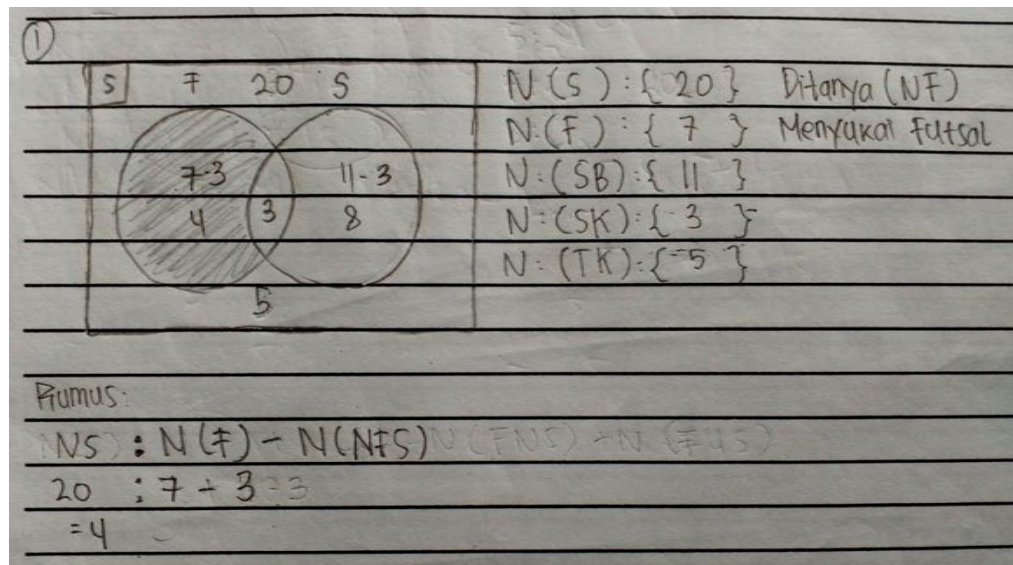 ①
S F 20 S
7-3 11-3
4 3 8
5
N (S) : { 20 } Ditanya (NF)
N: (F) : { 7 } Menyukai Futsal
N: (SB) : { 11 }
N: (SK) : { 3 }
N: (TK) : { 5 }
Rumus:
NS : N (F) - N(NFS)
20 : 7 - 3
= 4